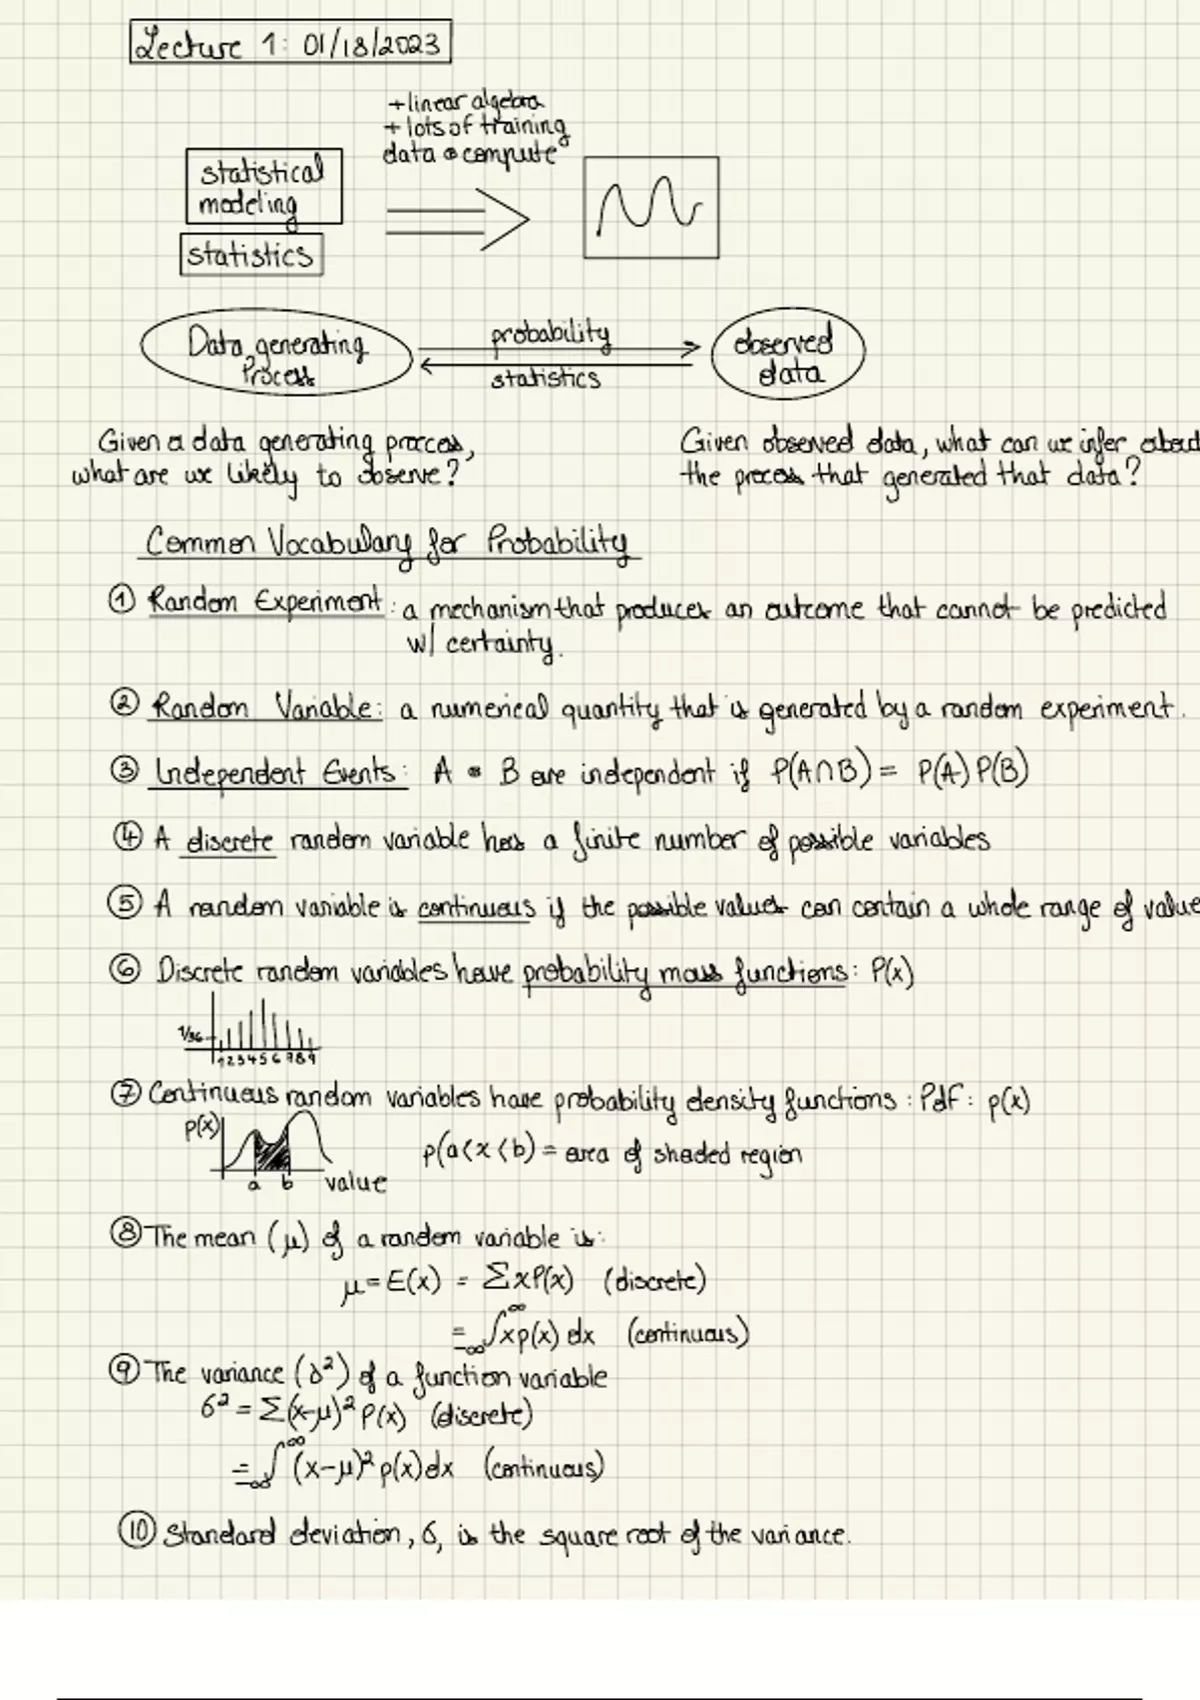 Lecture 1: 01/18/2023
+ linear algebra
+ lots of training
data & compute
statistical
modeling
statistics
Data generating
Process
probability
statistics
observed
data
Given a data generating process,
what are we likely to observe?
Given observed data, what can we infer about
the process that generated that data?
Common Vocabulary for Probability
① Random Experiment: a mechanism that produces an outcome that cannot be predicted
w/ certainty.
② Random Variable: a numerical quantity that is generated by a random experiment.
③ Independent Events: A & B are independent if P(A∩B) = P(A) P(B)
④ A discrete random variable has a finite number of possible variables
⑤ A random variable is continuous if the possible values can contain a whole range of value
⑥ Discrete random variables have probability mass functions: P(x)
1/36
1 2 3 4 5 6 7 8 9
⑦ Continuous random variables have probability density functions: Pdf: p(x)
p(x)
a b value
p(a<x<b) = area of shaded region
⑧ The mean (μ) of a random variable is:
μ = E(x) = ΣxP(x) (discrete)
= ∫_{-∞}^{∞} xp(x) dx (continuous)
⑨ The variance (δ²) of a function variable
σ² = Σ(x-μ)² P(x) (discrete)
= ∫_{-∞}^{∞} (x-μ)² p(x) dx (continuous)
⑩ Standard deviation, σ, is the square root of the variance.